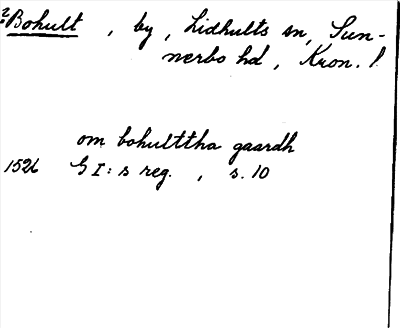 2 Bohult , by , Lidhults sn, Sun-
nerbo hd , Kron. l.
om bohulttha gaardh
1526 G I:s reg. , s. 10